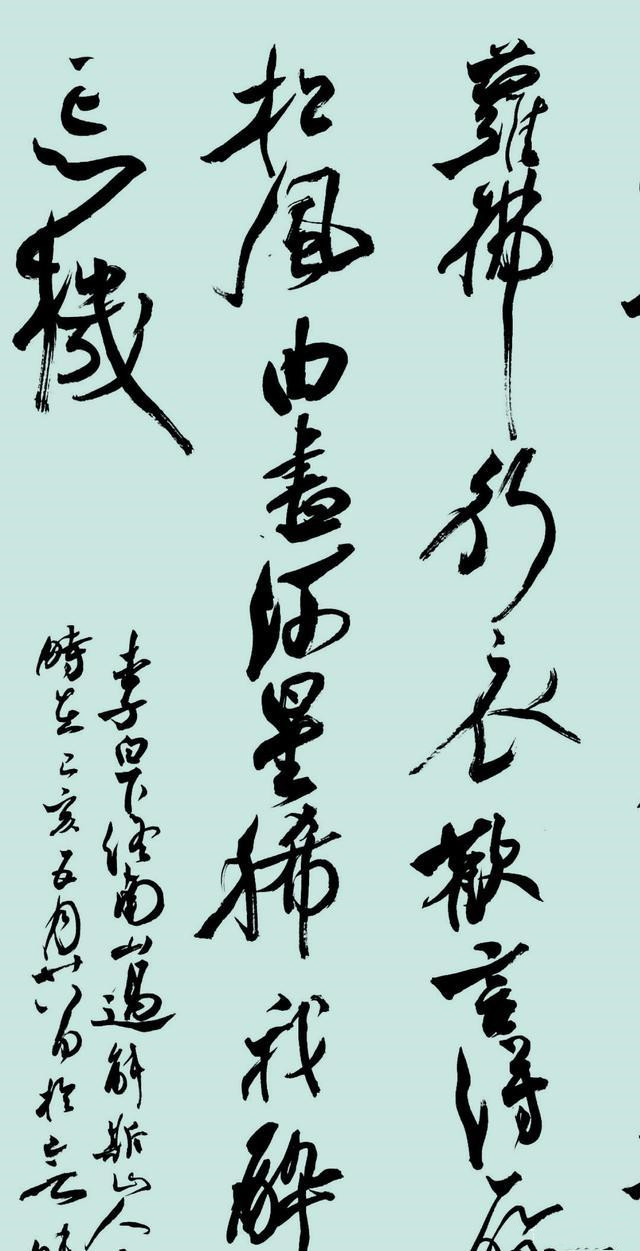 蘿拂行衣歡言得所
松風曲盡河星稀我醉
忘機
李白下終南山過斛斯山人
時在己亥五月廿八日於